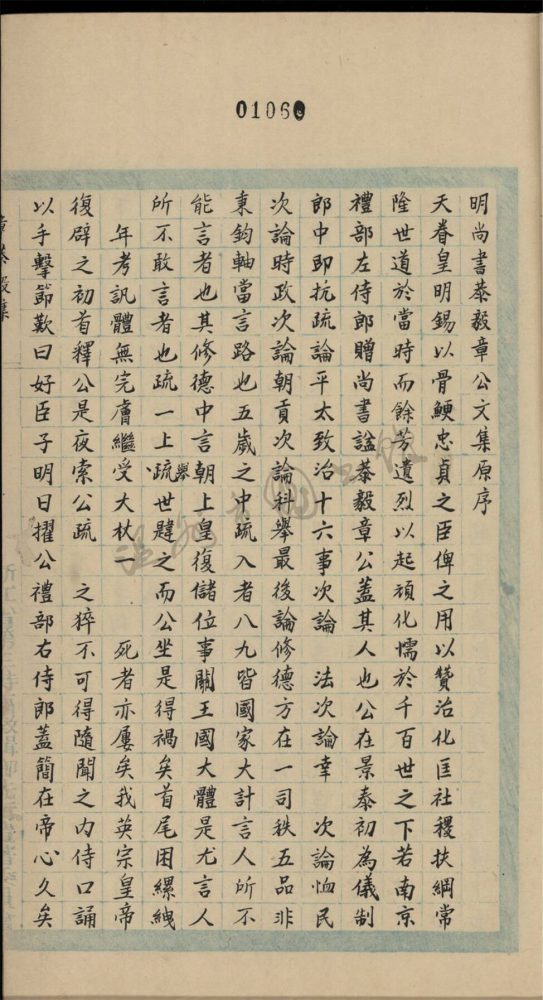 01060
明尚書恭毅章公文集原序
天眷皇明錫以骨鯁忠貞之臣俾之用以贊治化匡社稷扶綱常
隆世道於當時而餘芳遺烈以起頑化懦於千百世之下若南京
禮部左侍郎贈尚書謚恭毅章公蓋其人也公在景泰初為儀制
郎中即抗疏論平太致治十六事次論 法次論幸 次論恤民
次論時政次論朝貢次論科舉最後論修德方在一司秩五品非
秉鈞軸當言路也五歲之中疏入者八九皆國家大計言人所不
能言者也其修德中言朝上皇復儲位事關王國大體是尤言人
所不敢言者也疏一上疏舉世韙之而公坐是得禍矣首尾困縲絏
年考訊體無完膚繼受大杖一 死者亦屢矣我英宗皇帝
復辟之初首釋公是夜索公疏 之猝不可得隨聞之內侍口誦
以手擊節歎曰好臣子明日擢公禮部右侍郎蓋簡在帝心久矣
章恭毅集